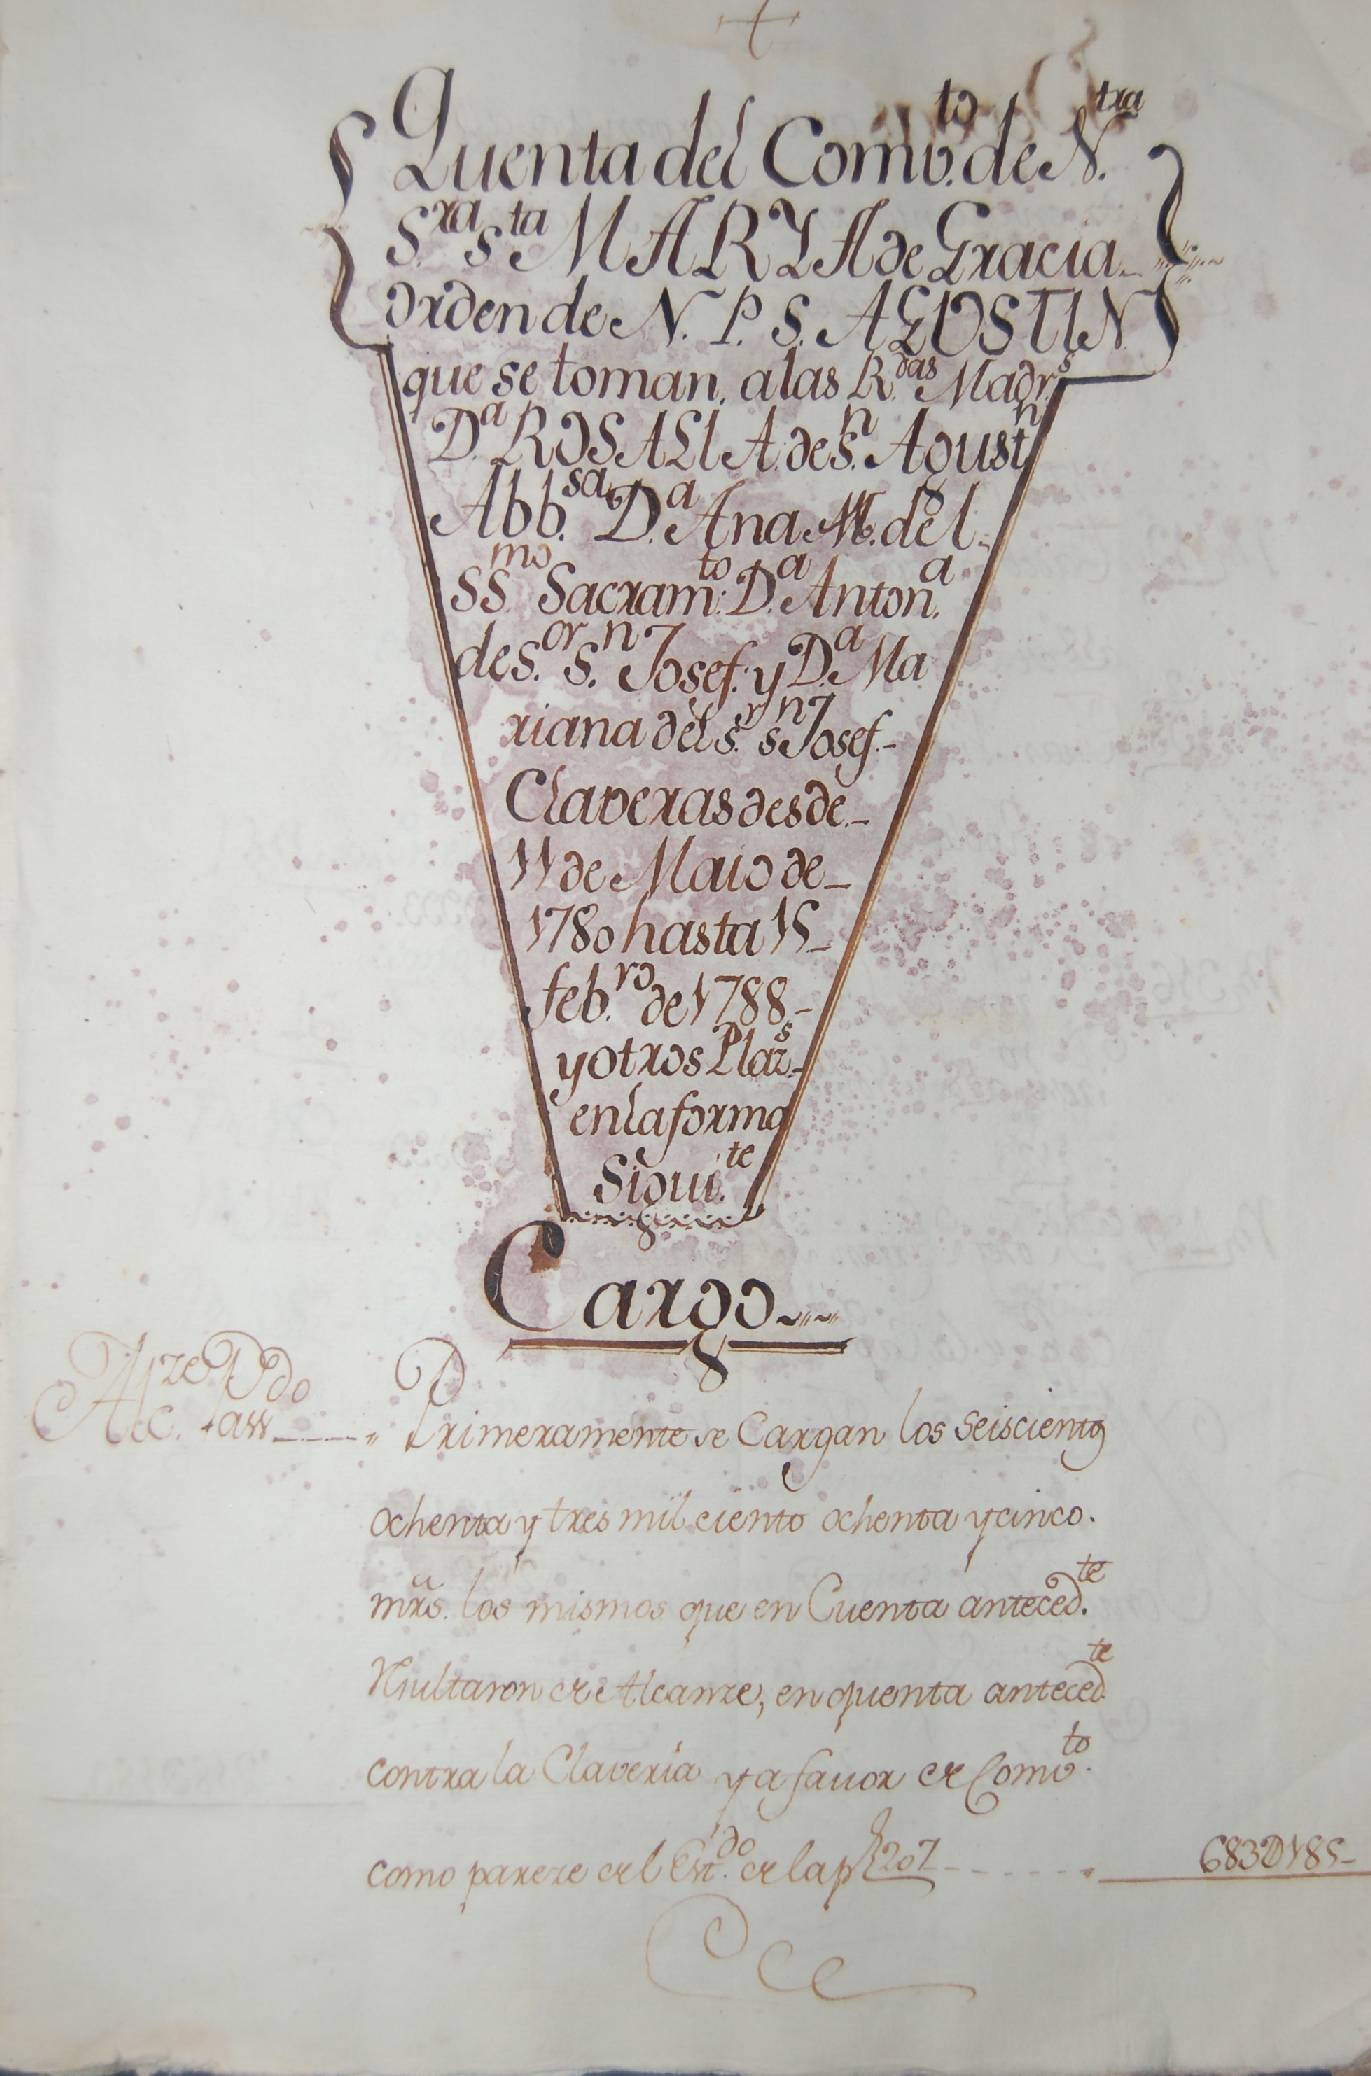 Quenta del Comv.to de N.tra
S.ra S.ta MARYA de Gracia
orden de N. P. S. AGUSTIN
que se toman, a las R.das Madr.s
D.a ROSALIA de S.n Agust.n
Abb.sa D.a Ana M. del
SS.mo Sacram.to D.a Anton.a
de S.or S.n Josef. y D.a Ma
riana del S.r S.n Josef.
Claveras desde
11 de Maio de
1780 hasta 15
feb.ro de 1788
y otros Plaz.s
en la forma
Sigui.te
Cargo
Alc.ze Pas.do
Primeramente se Cargan los Seiscientos
ochenta y tres mil ciento ochenta y cinco.
mrs. los mismos que en Cuenta anteced.te
Resultaron de Alcanze, en quenta anteced.te
contra la Claveria y a favor de Comv.to
como pareze del Est.do de la p 207
683D185